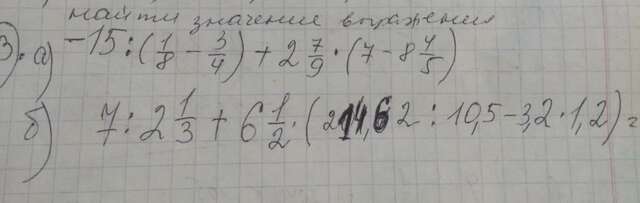 найти значение выражения
3). а) -15:(1/8 - 3/4) + 2 7/9 · (7 - 8 4/5)
б) 7 : 2 1/3 + 6 1/2 · (214,62 : 10,5 - 3,2 · 1,2) =